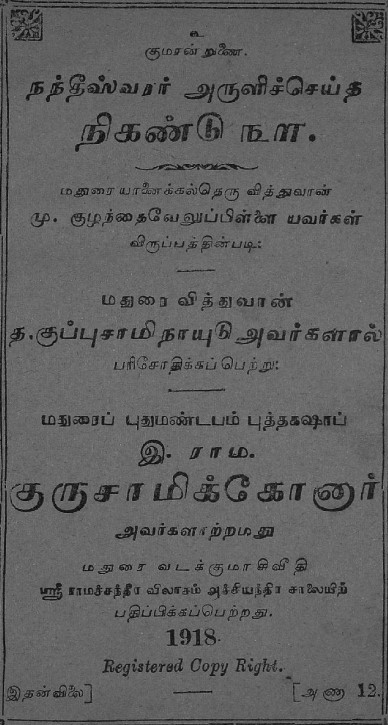 உ
குமரன் றுணை.
நந்தீஸ்வரர் அருளிச்செய்த
நிகண்டு ௩௱.
மதுரையானைக்கல்தெரு வித்துவான்
மு. குழந்தைவேலுப்பிள்ளை யவர்கள்
விருப்பத்தின்படி:
மதுரை வித்துவான்
த.குப்புசாமிநாயுடு அவர்களால்
பரிசோதிக்கப் பெற்று:
மதுரைப் புதுமண்டபம் புத்தகஷாப்
இ. ராம.
குருசாமிக்கோனார்
அவர்களாற்றமது
மதுரை வடக்குமாசிவீதி
ஸ்ரீ ராமச்சந்திர விலாசம் அச்சியந்திர சாலையிற்
பதிப்பிக்கப்பெற்றது.
1918.
Registered Copy Right.
இதன்விலை] [அணா 12.